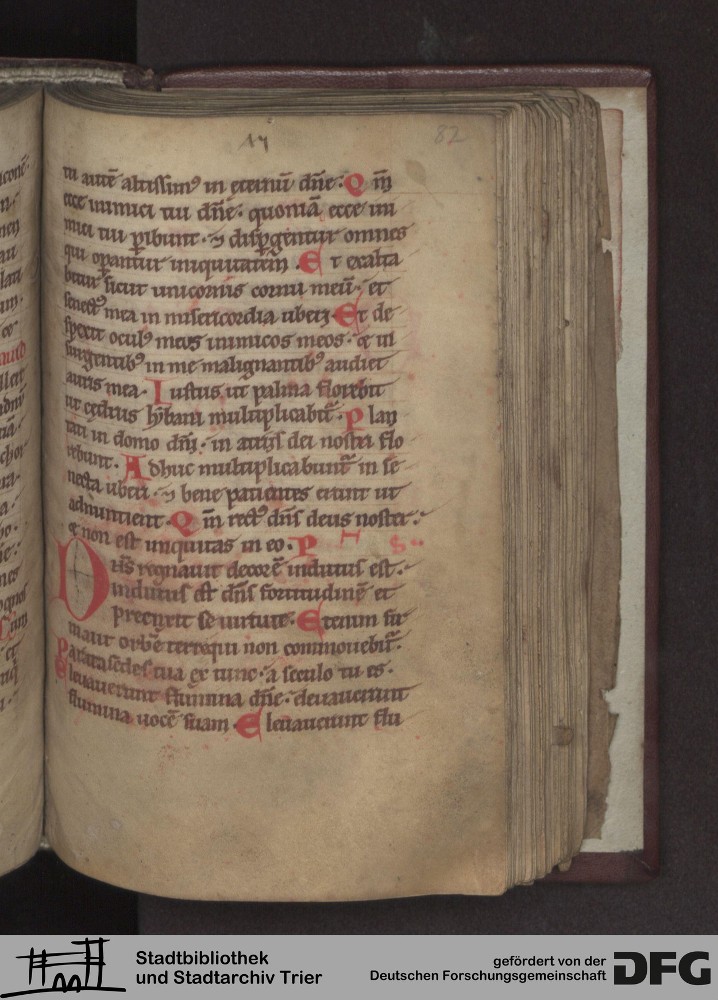 82
tu autē altissimꝰ in eternū dn̄e· Qm̄
ecce inimici tui dn̄e· quoniā ecce ini
mici tui ꝑibunt· ⁊ disꝑgentur omnes
qui oꝑantur iniquitatem Et exalta
bitur sicut unicornis cornu meū· et
senectꝰ mea in misericordia uberi Et de
spexit oculꝰ meus inimicos meos· ⁊ in
surgentibꝰ in me malignantibꝰ audiet
auris mea· Iustus ut palma florebit
ut cedrus lybani multiplicabit̄· Plan
tati in domo dn̄i· in atrijs dei nostri flo
rebunt· Adhuc multiplicabunt̄ in se
necta uberi· ⁊ bene patientes erunt ut
adnuntient· Qm̄ rectꝰ dn̄s deus noster·
⁊ non est iniquitas in eo· P
Dn̄s regnauit decorē indutus est·
indutus est dn̄s fortitudinē et
precinxit se uirtute· Etenim fir
mauit orbē terre qui non commouebit̄·
Parata sedes tua ex tunc· a seculo tu es·
Eleuauerunt flumina dn̄e· eleuauerunt
flumina uocē suam Eleuauerunt flu
Stadtbibliothek
und Stadtarchiv Trier
gefördert von der
Deutschen Forschungsgemeinschaft
DFG